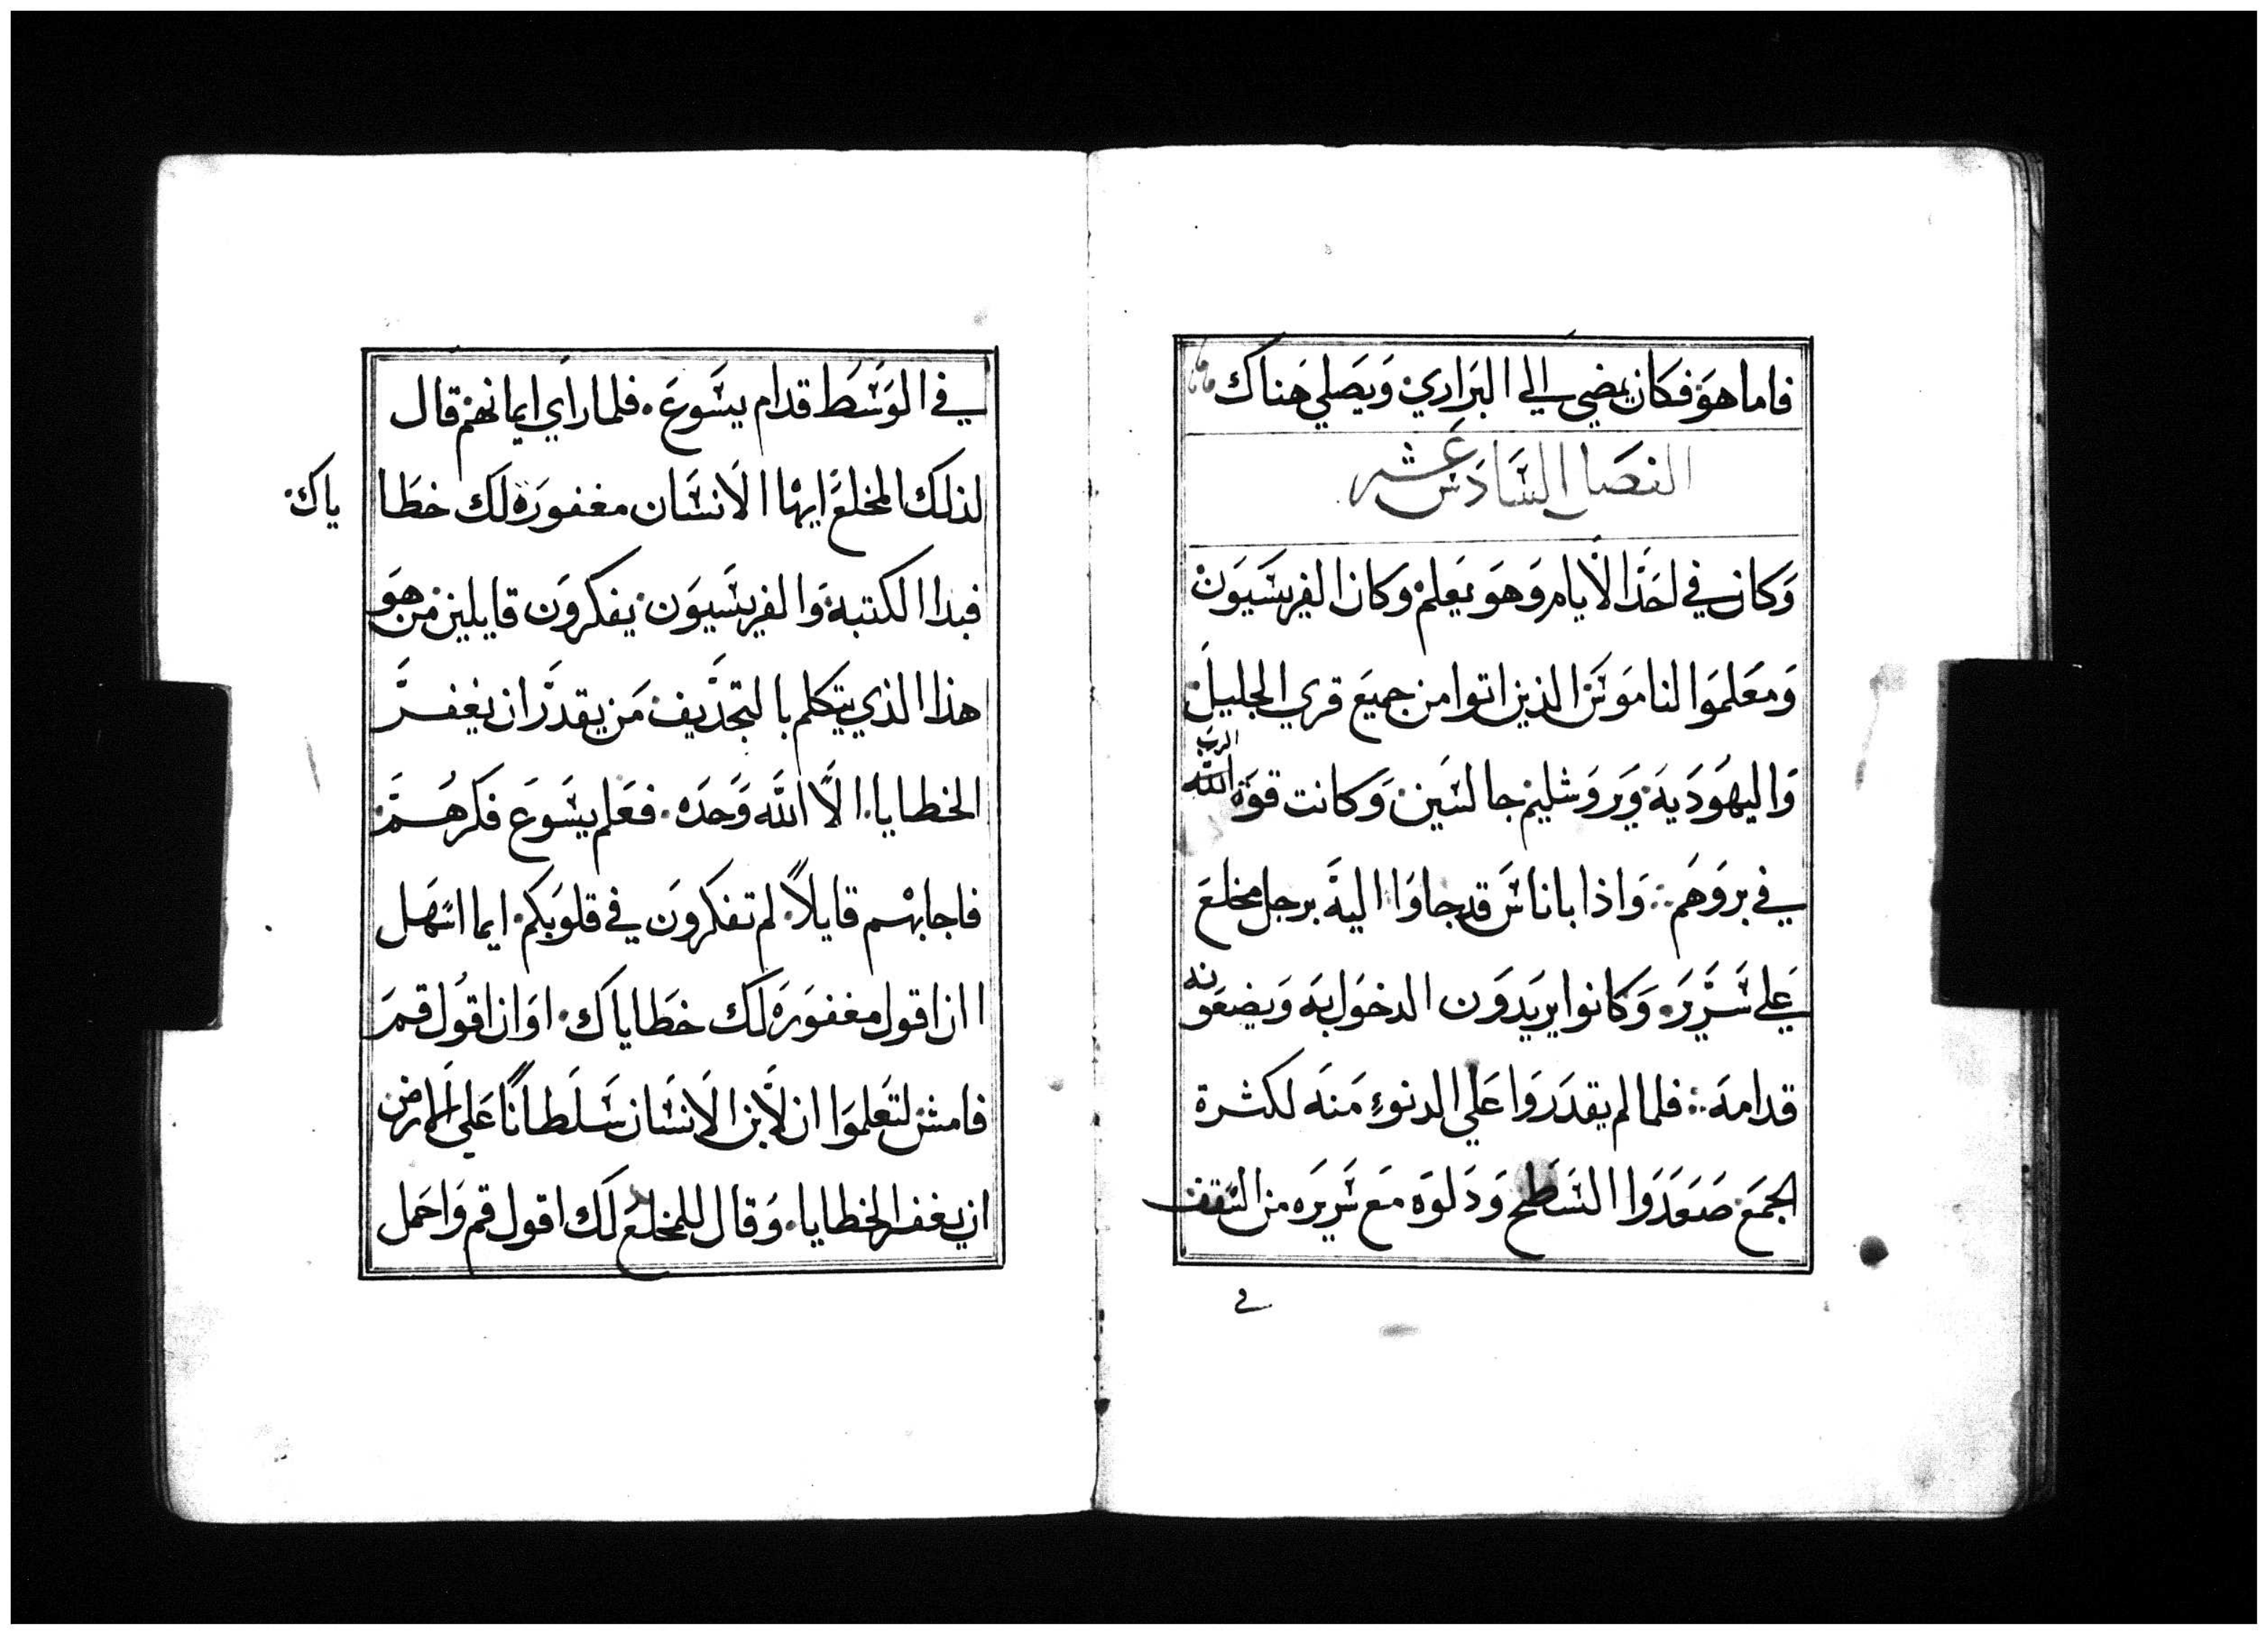 فاما هوَ فكان يمضي الي البرَاري وَيصَلي هَناك
الفصَل السَادسَ عَشر
وَكان في احَد الايام وَهوَ يعَلم وَكان الفريسَيوَن
وَمعَلموَا الناموَسَ الذين اتوا من جميعَ قري الجليل
وَاليهوَدَيهَ وَيرَوَشليم جالسَين وَكانت قوَة الله
الربَ
في بروَهَم وَاذا باناسَ قد جاوَا اليهَ برجل مخلعَ
عَلي سَرَيرَه وَكانوا يرَيدوَن الدخوَل بهَ وَيضعَونه
قدامهَ فلما لم يقدرَوَا عَلي الدنوءِ مَنهَ لكثرة
الجمعَ صَعدَوَا السَطح وَدَلوَه معَ سَرَيرَه من السَقف
في
في الوَسَط قدام يسَوعَ فلما رأي ايمانهم قال
لذلك المخلعَ ايهْا الانسَان مغفورَة لك خطَا
ياك
فبدا الكتبة وَالفريسَيوَن يفكروَن قايلين من هوَ
هذا الذي يتكلم بالتجدَيف مَن يقدرَ ان يغفرَ
الخطايا الاَ الله وَحدَه فعَلم يسَوعَ فكرهَم
فاجابهْم قايلاً لم تفكروَن في قلوبَكم ايما اسَهَل
ان اقول مغفوَرَه لَك خطَاياك اوَ ان اقوُل قمَ
فامش لتعَلموَا ان لاَبن الانسَان سَلَطاناً عَلي الارض
ان يغفر الخطايا وَقال للمخلعَ لَك اقول قم وَاحَمل